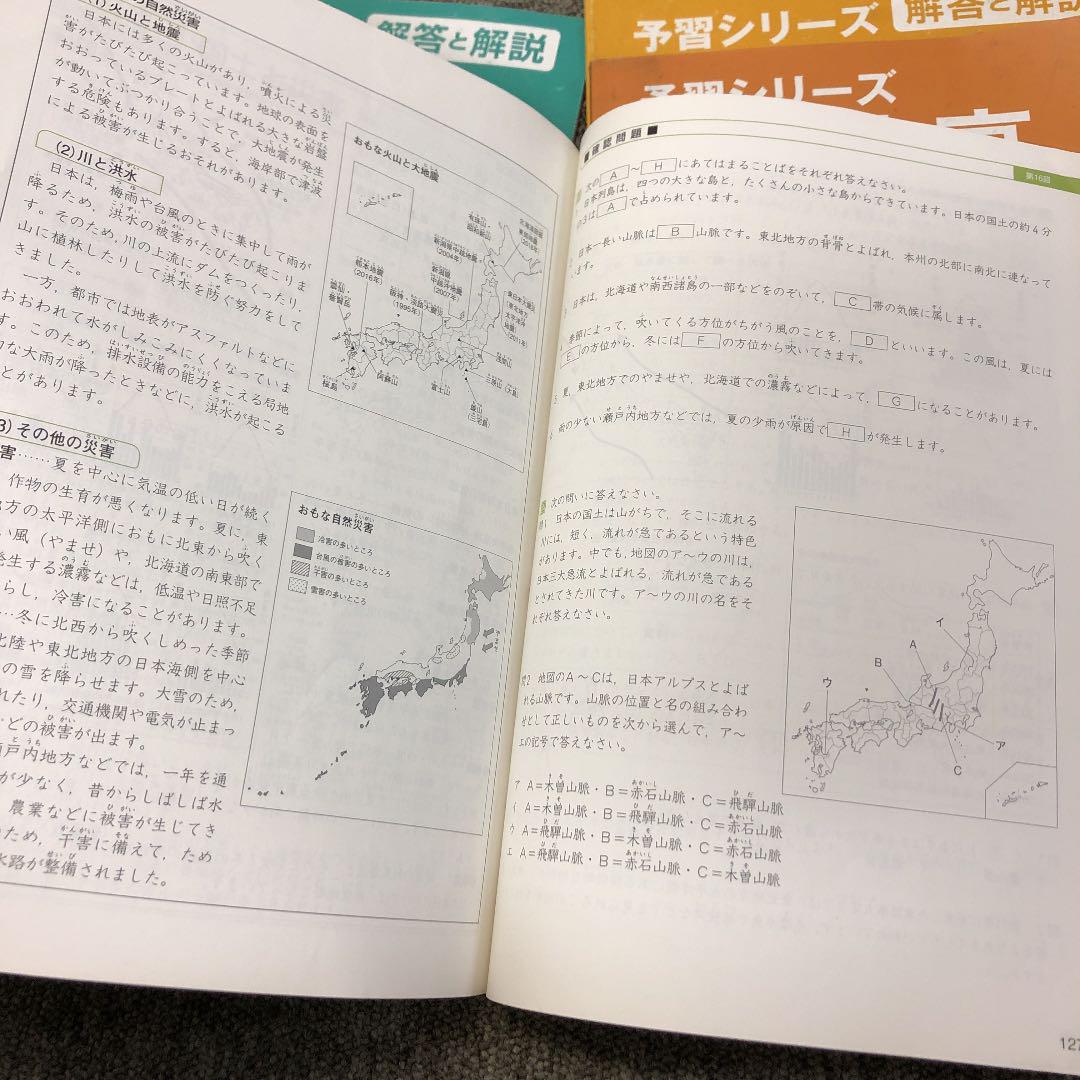 解答と解説
予習シリーズ
解答と解説
予習シリーズ
の自然災害
(1) 火山と地震
日本には多くの火山があり，噴火による災
害がたびたび起こっています。地球の表面を
おおっているプレートとよばれる大きな岩盤
が動いてぶつかり合うことで，大地震が発生
する危険もあります。すると，海岸部で津波
による被害が生じるおそれがあります。
(2) 川と洪水
日本は，梅雨や台風のときに集中して雨が
降るため，洪水の被害がたびたび起こりま
す。そのため，川の上流にダムをつくったり，
山に植林したりして洪水を防ぐ努力をして
きました。
一方，都市では地表がアスファルトなどに
おおわれて水がしみこみにくくなっていま
す。このため，排水設備の能力をこえる局地
的な大雨が降ったときなどに，洪水が起こる
ことがあります。
3) その他の災害
害……夏を中心に気温の低い日が続く
作物の生育が悪くなります。夏に，東
方の太平洋側におもに北東から吹く
い風（やませ）や，北海道の南東部で
発生する濃霧などは，低温や日照不足
らし，冷害になることがあります。
…冬に北西から吹くしめった季節
北陸や東北地方の日本海側を中心
の雪を降らせます。大雪のため，
れたり，交通機関や電気が止まっ
どの被害が出ます。
瀬戸内地方などでは，一年を通
が少なく，昔からしばしば水
農業などに被害が生じてき
のため，干害に備えて，ため
水路が整備されました。
おもな火山と大地震
有珠山
昭和新山
新潟県中越地震
（2004年）
熊本地震
（2016年）
新潟県
中越沖地震
（2007年）
阪神・淡路大震災
（1995年）
東日本大震災
雲仙
普賢岳
桜島
阿蘇山
富士山
浅間山
三原山（大島）
雄山
（三宅島）
おもな自然災害
冷害の多いところ
台風の被害の多いところ
干害の多いところ
雪害の多いところ
やませ
■確認問題■
第16回
次の A ～ H にあてはまることばをそれぞれ答えなさい。
日本列島は，四つの大きな島と，たくさんの小さな島からできています。日本の国土の約4分
の3は A で占められています。
日本一長い山脈は B 山脈です。東北地方の背骨とよばれ，本州の北部に南北に連なって
います。
日本は，北海道や南西諸島の一部などをのぞいて， C 帯の気候に属します。
季節によって，吹いてくる方位がちがう風のことを， D といいます。この風は，夏には
E の方位から，冬には F の方位から吹いてきます。
夏，東北地方でのやませや，北海道での濃霧などによって， G になることがあります。
雨の少ない瀬戸内地方などでは，夏の少雨が原因で H が発生します。
次の問いに答えなさい。
問1 日本の国土は山がちで，そこに流れる
川には，短く，流れが急であるという特色
があります。中でも，地図のア～ウの川は，
日本三大急流とよばれる，流れが急である
とされてきた川です。ア～ウの川の名をそ
れぞれ答えなさい。
問2 地図のA～Cは，日本アルプスとよば
れる山脈です。山脈の位置と名の組み合わ
せとして正しいものを次から選んで，ア～
エの記号で答えなさい。
ア A＝木曽山脈・B＝赤石山脈・C＝飛驒山脈
イ A＝木曽山脈・B＝飛驒山脈・C＝赤石山脈
ウ A＝飛驒山脈・B＝木曽山脈・C＝赤石山脈
エ A＝飛驒山脈・B＝赤石山脈・C＝木曽山脈
イ
A
B
ウ
ア
C
127